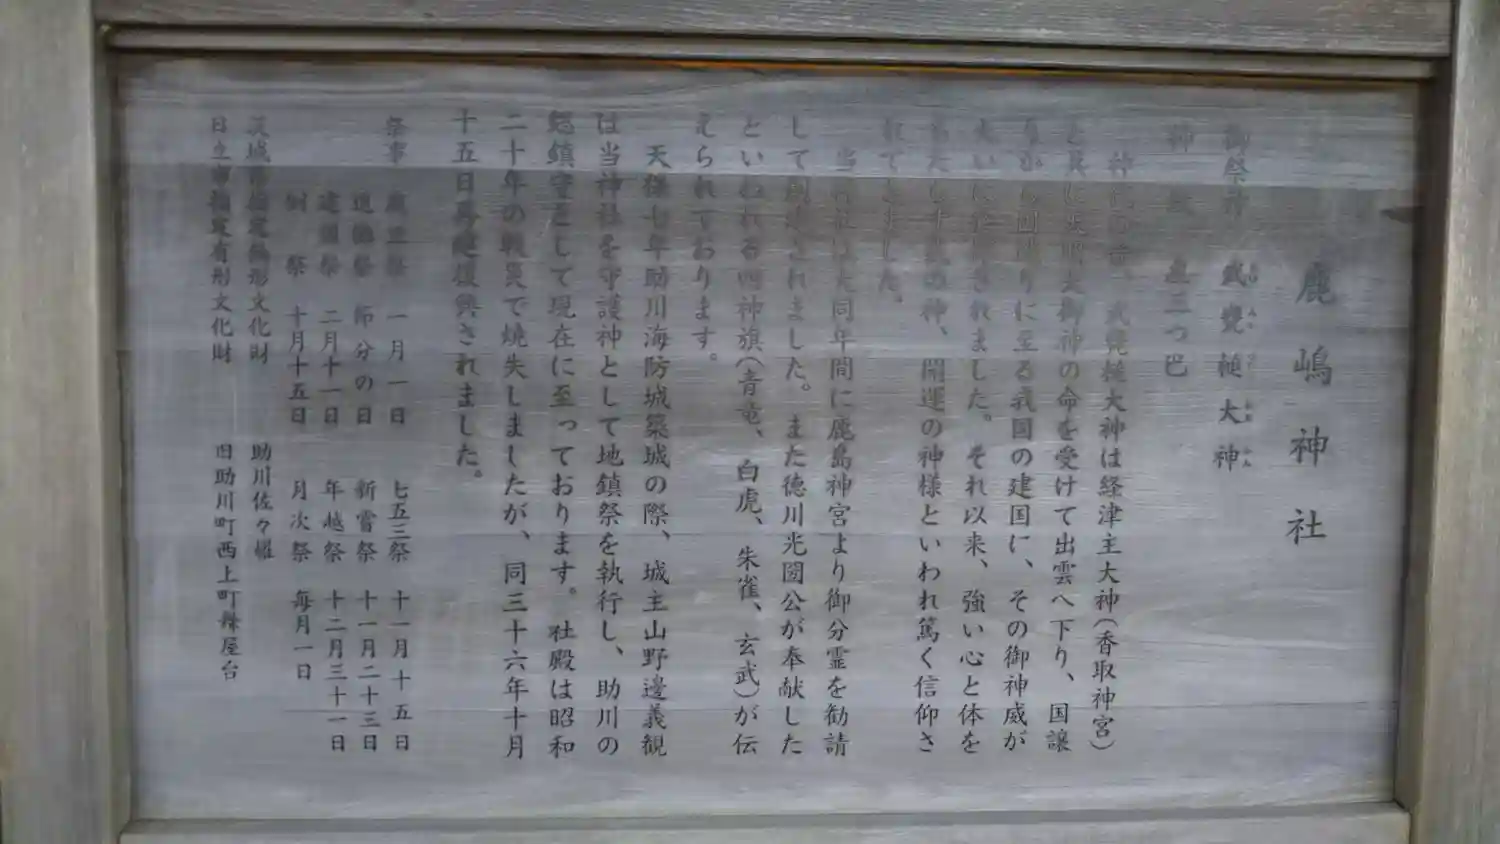 鹿嶋神社
御祭神 武甕槌大神
神紋 左三つ巴
神代の昔、武甕槌大神は経津主大神(香取神宮)
と共に天照大御神の命を受けて出雲へ下り、国譲
りに至る我国の建国に、その御神威が
大いに されました。それ以来、強い心と体を
の神、開運の神様といわれ篤く信仰さ
れてきました。
当神社は大同年間に鹿島神宮より御分霊を勧請
して創建されました。また徳川光圀公が奉献した
といわれる四神旗(青竜、白虎、朱雀、玄武)が伝
えられております。
天保七年助川海防城築城の際、城主山野邊義観
は当神社を守護神として地鎮祭を執行し、助川の
総鎮守として現在に至っております。社殿は昭和
二十年の戦災で焼失しましたが、同三十六年十月
十五日再建復興されました。
祭事 歳旦祭 一月一日 七五三祭 十一月十五日
追儺祭 節分の日 新嘗祭 十一月二十三日
建国祭 二月十一日 年越祭 十二月三十一日
例祭 十月十五日 月次祭 毎月一日
茨城県指定無形文化財 助川佐々羅
日立市指定有形文化財 旧助川町西上町祭屋台